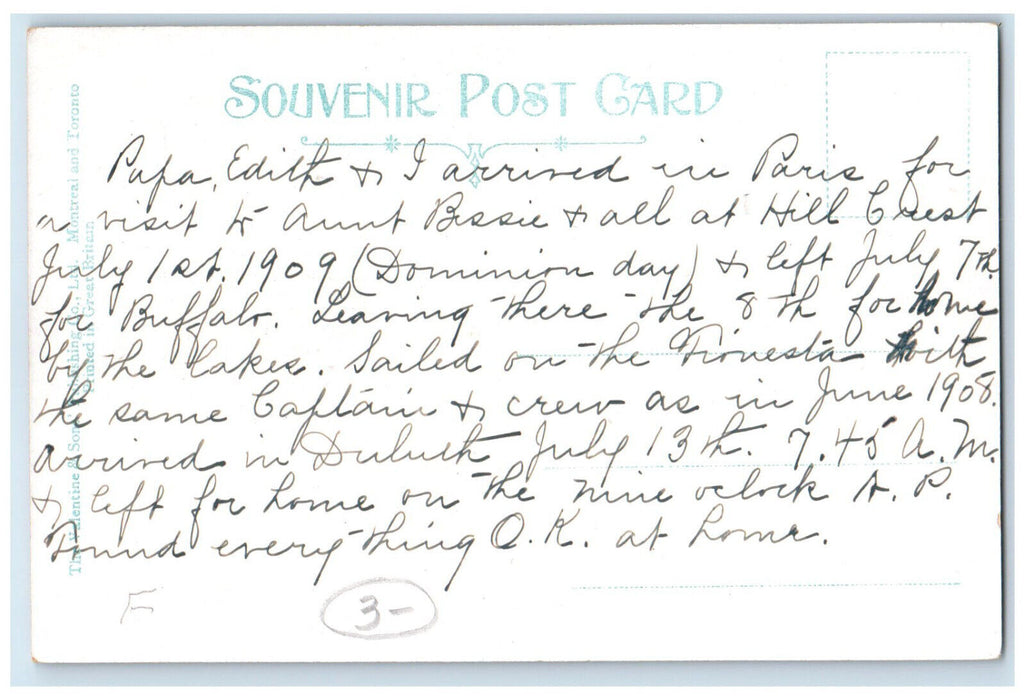 SOUVENIR POST CARD
Papa, Edith & I arrived in Paris for
a visit to Aunt Bessie & all at Hill Crest
July 1st. 1909 (Dominion day) & left July 7th
for Buffalo. Leaving there the 8th for home
by the lakes. Sailed on the Tionesta with
the same Captain & crew as in June 1908.
arrived in Duluth July 13th. 7.45 A.M.
& left for home on the nine oclock N.P.
Found everything O.K. at home.
The Valentine & Sons Publishing Co., Ltd. Montreal and Toronto
Printed in Great Britain
F
3-